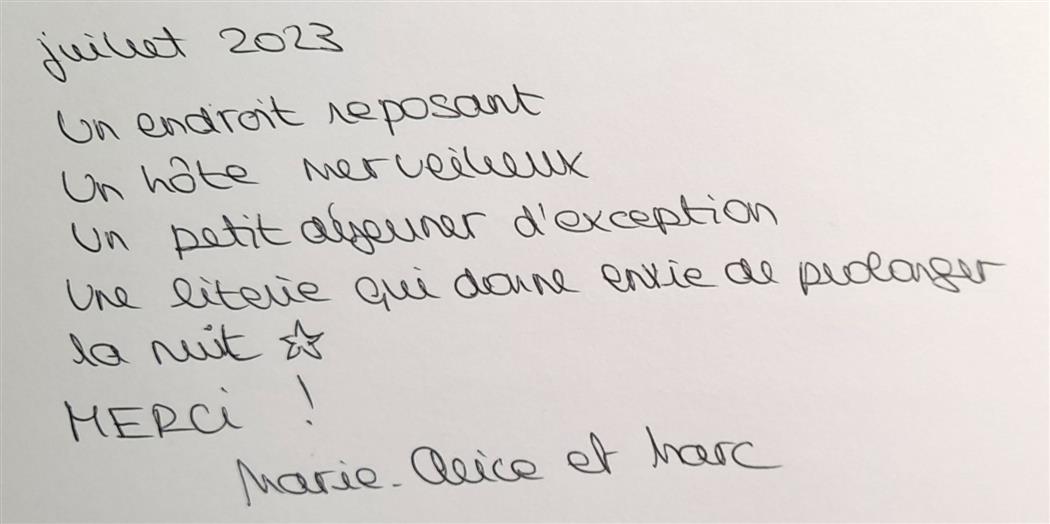 juillet 2023
Un endroit reposant
Un hôte merveilleux
Un petit déjeuner d'exception
Une literie qui donne envie de prolonger
la nuit ☆
MERCi !
Marie-Alice et Marc